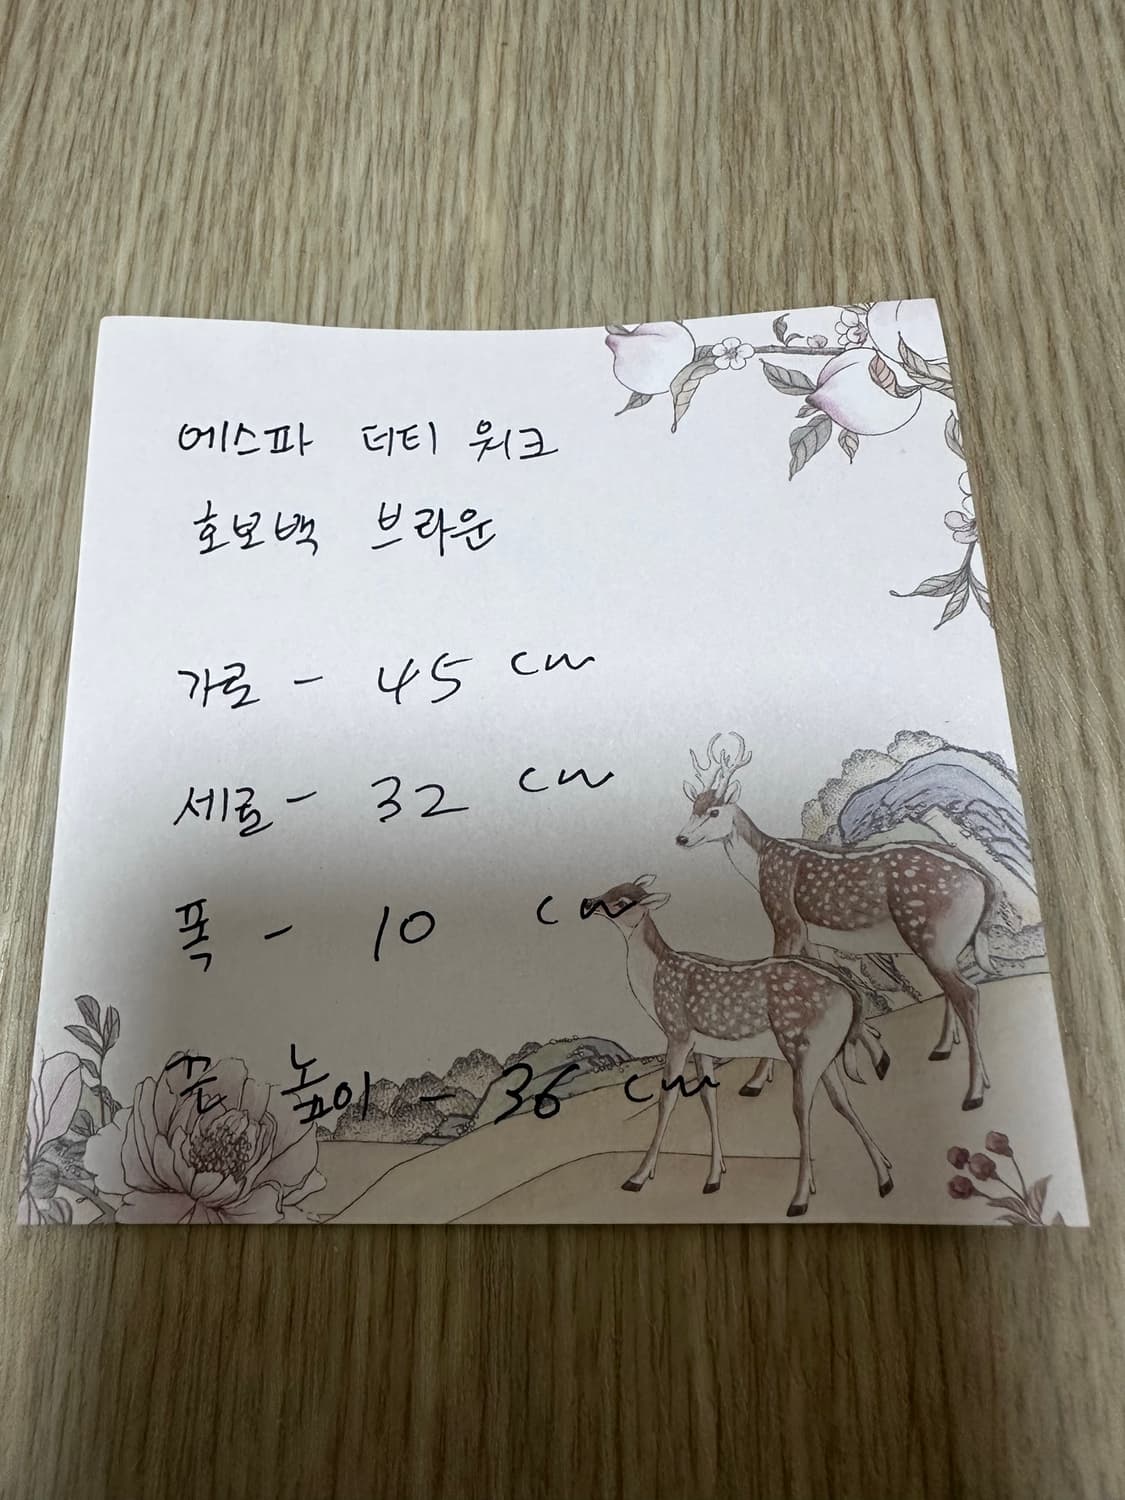 에스파 더티 워크
호보백 브라운
가로 - 45 cm
세로 - 32 cm
폭 - 10 cm
끈 높이 - 36 cm